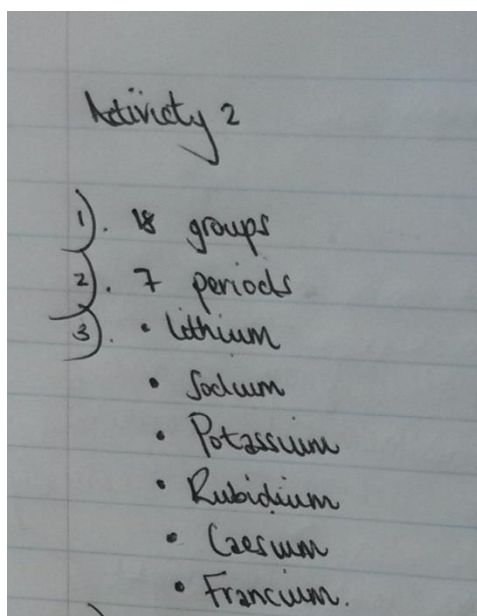 Activity 2
1). 18 groups
2). 7 periods
3). • Lithium
• Sodium
• Potassium
• Rubidium
• Caesium
• Francium.